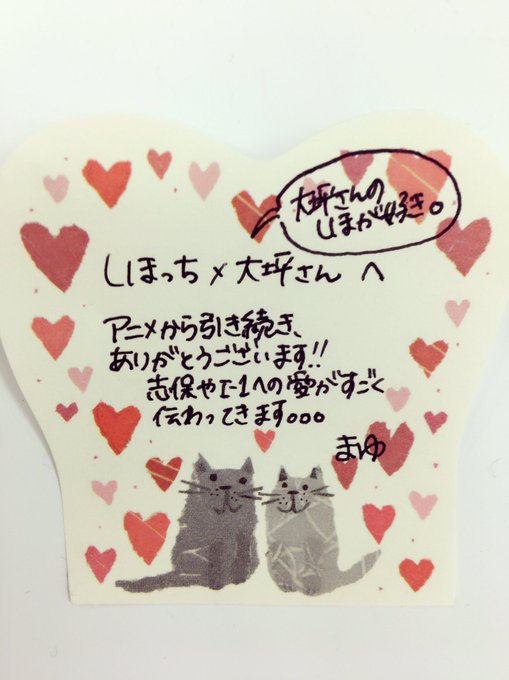 大坪さんの
しほが好き。
しほっち×大坪さん へ
アニメから引き続き、
ありがとうございます!!
志保やI-1への愛がすごく
伝わってきます。。。
まゆ